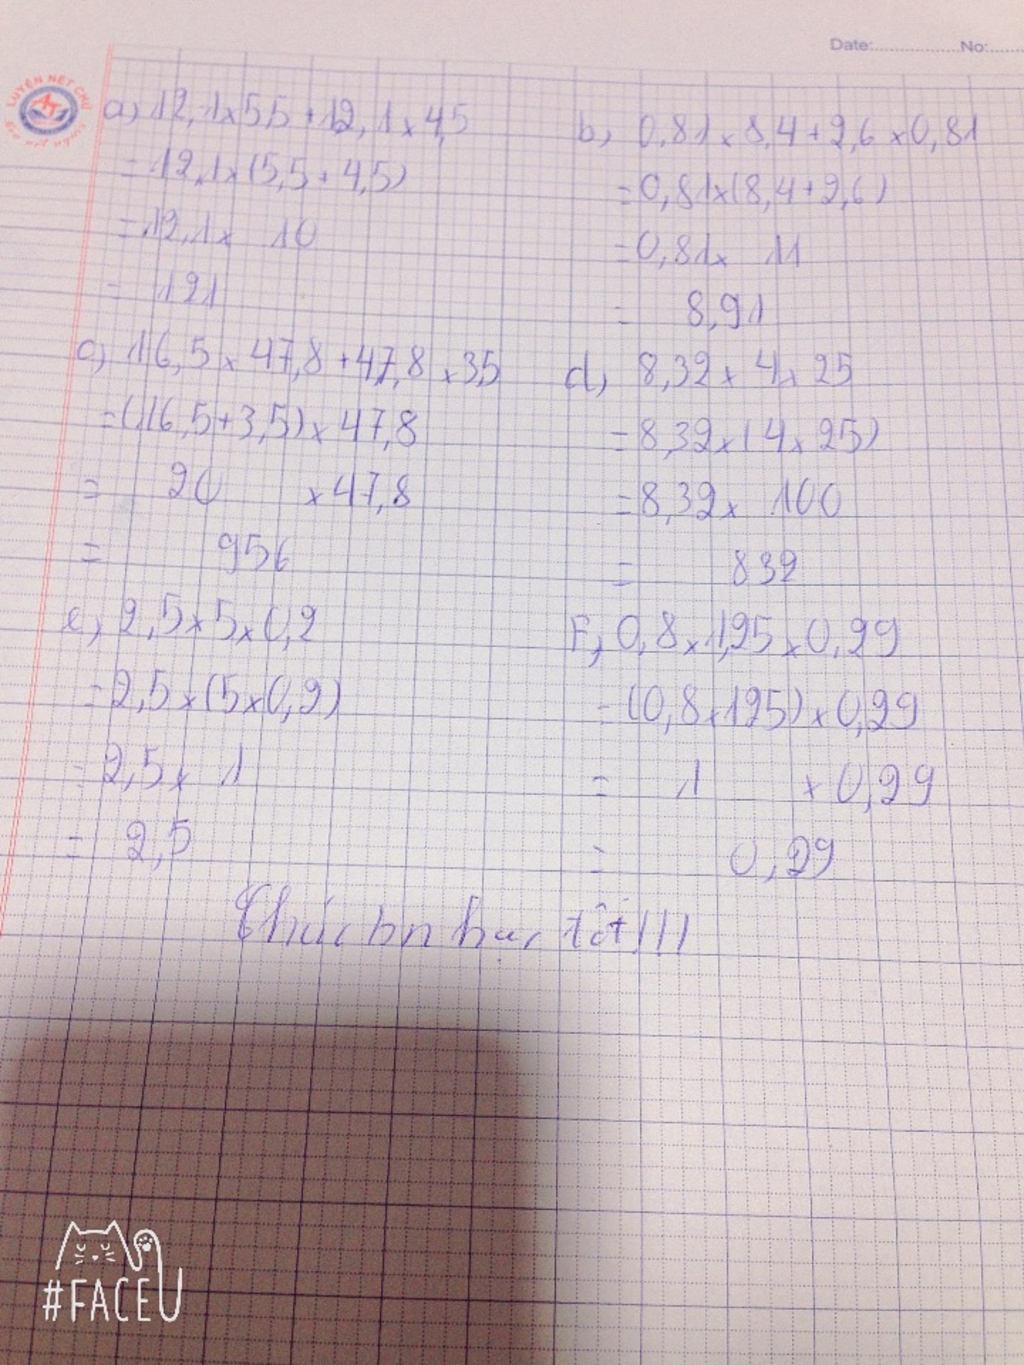 Date: No:
LUYỆN NÉT CHỮ
a) 12,1 x 5,5 + 12,1 x 4,5
= 12,1 x (5,5 + 4,5)
= 12,1 x 10
= 121
b) 0,81 x 8,4 + 2,6 x 0,81
= 0,81 x (8,4 + 2,6)
= 0,81 x 11
= 8,91
c) 16,5 x 47,8 + 47,8 x 3,5
= (16,5 + 3,5) x 47,8
= 20 x 47,8
= 956
d) 8,32 x 4 x 25
= 8,32 x (4 x 25)
= 8,32 x 100
= 832
e) 2,5 x 5 x 0,2
= 2,5 x (5 x 0,2)
= 2,5 x 1
= 2,5
F) 0,8 x 1,25 x 0,29
= (0,8 x 125) x 0,29
= 1 x 0,29
= 0,29
Chúc bn học tốt!!!
#FACEU